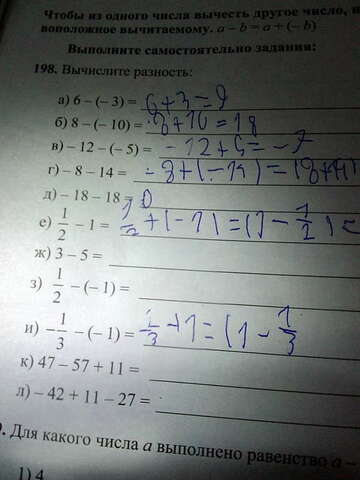 Чтобы из одного числа вычесть другое число,
воположное вычитаемому. a – b = a + (– b)
Выполните самостоятельно задания:
198. Вычислите разность:
а) 6 – (– 3) = 6+3=9
б) 8 – (– 10) = 8+10=18
в) – 12 – (– 5) = -12+5=-7
г) – 8 – 14 = -8+(-14)=(8+14)
д) – 18 – 18 = 0
е) 1/2 – 1 = 1/2+(-1)=(1-1/2)
ж) 3 – 5 =
з) 1/2 – (– 1) =
и) – 1/3 – (– 1) = 1/3+1=(1-1/3
к) 47 – 57 + 11 =
л) – 42 + 11 – 27 =
. Для какого числа a выполнено равенство a –
1) 4